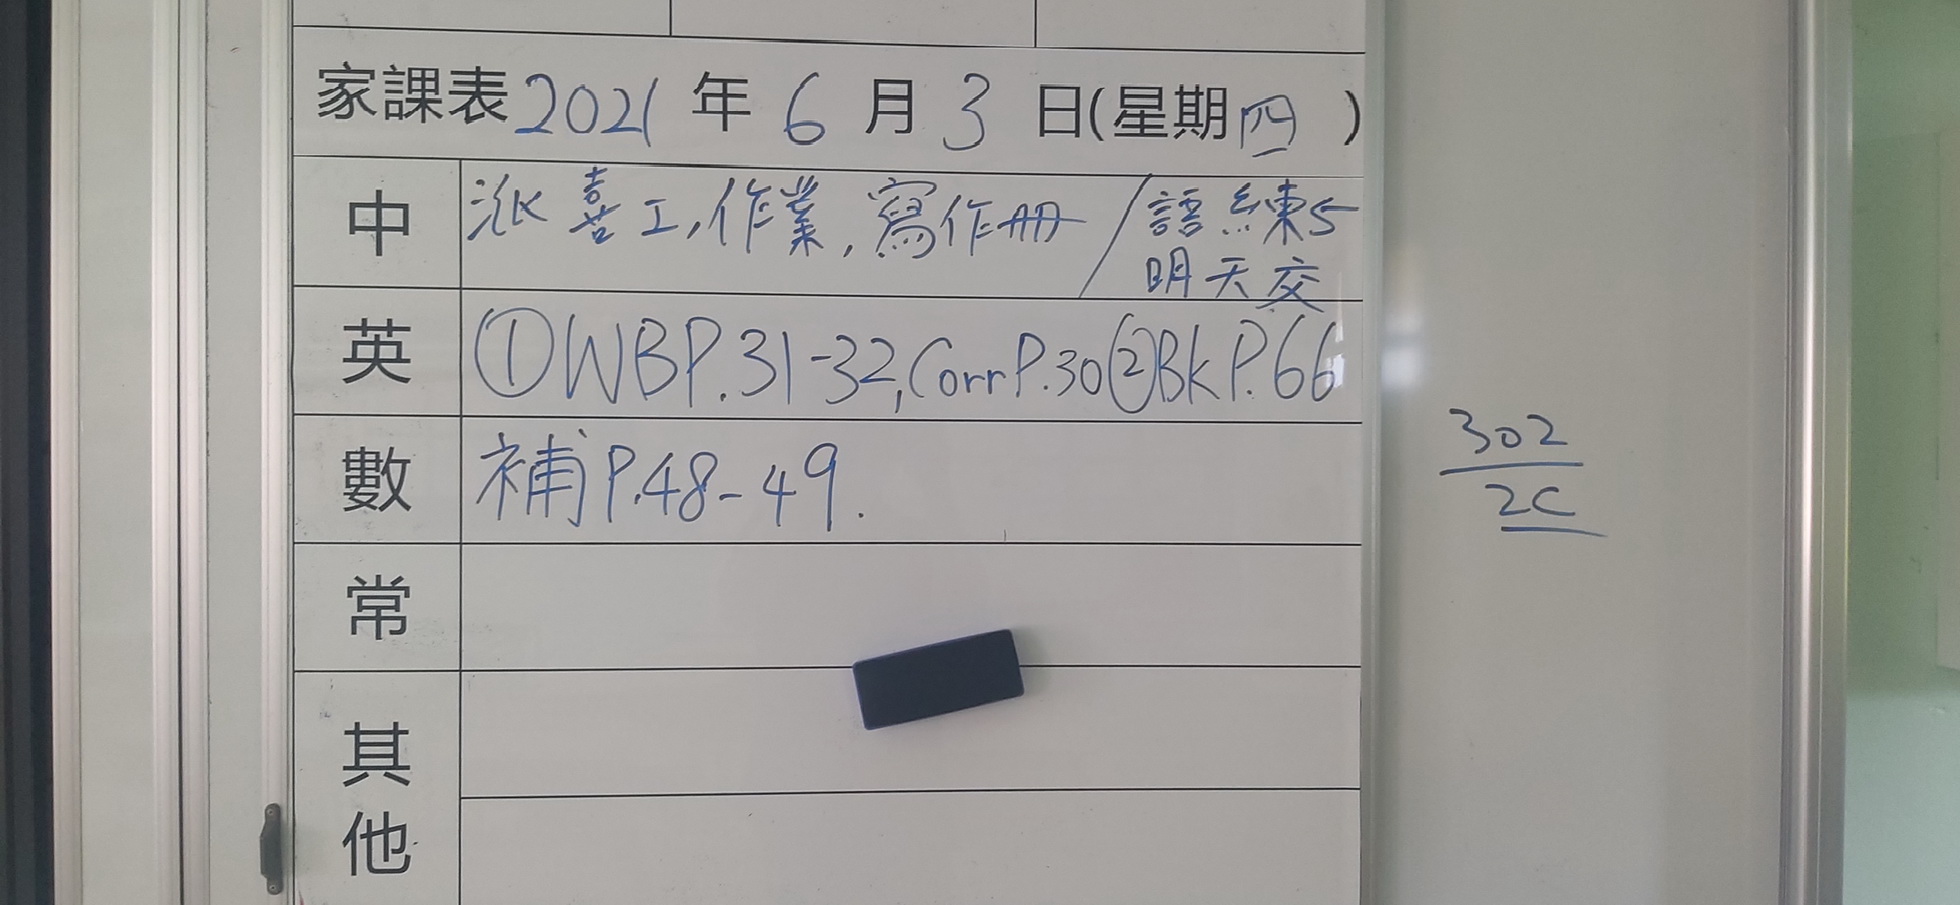 家課表2021年6月3日(星期四)
中 派喜工,作業,寫作冊/語練5
明天交
英 ①WBP.31-32,CorrP.30②BkP.66
數 補P.48-49.
常
其
他
302
2C